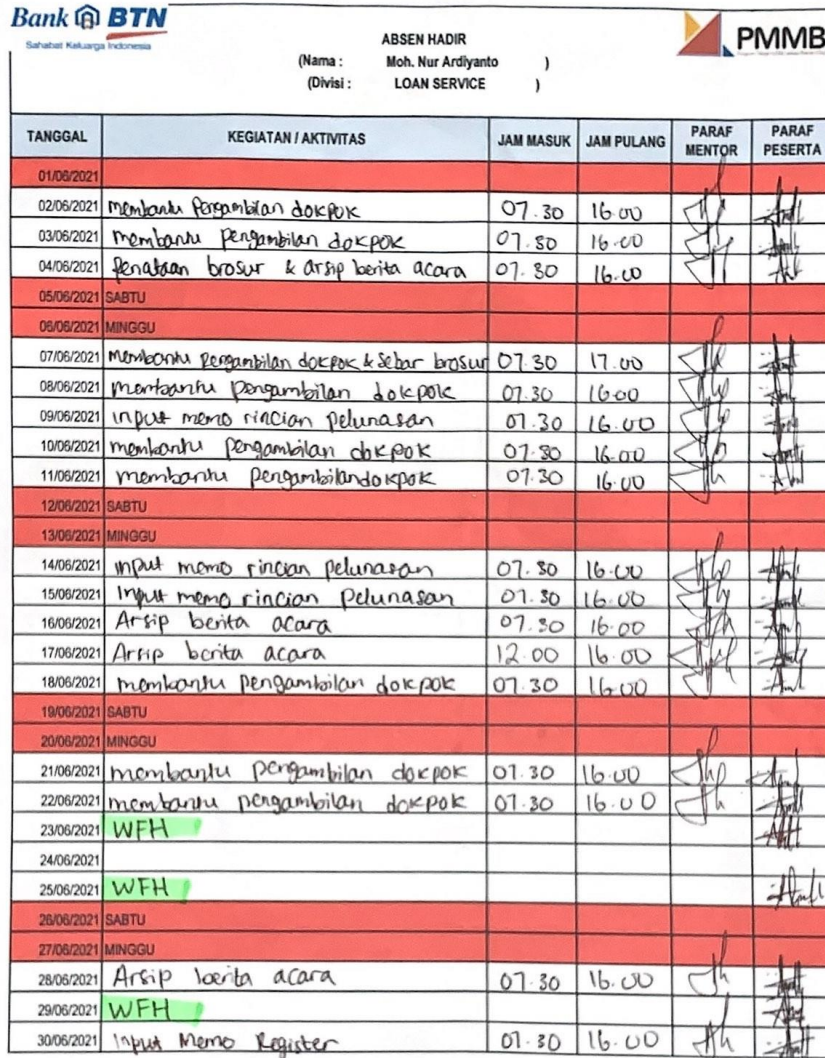 Bank BTN
Sahabat Keluarga Indonesia
PMMB
ABSEN HADIR
(Nama : Moh. Nur Ardiyanto )
(Divisi : LOAN SERVICE )
TANGGAL KEGIATAN / AKTIVITAS JAM MASUK JAM PULANG PARAF MENTOR PARAF PESERTA
01/06/2021
02/06/2021 membantu Pengambilan dokpok 07.30 16.00
03/06/2021 membantu pengambilan dokpok 07.30 16.00
04/06/2021 Penataan brosur & arsip berita acara 07.30 16.00
05/06/2021 SABTU
06/06/2021 MINGGU
07/06/2021 Membantu pengambilan dokpok & sebar brosur 07.30 17.00
08/06/2021 membantu pengambilan dokpok 07.30 16.00
09/06/2021 input memo rincian pelunasan 07.30 16.00
10/06/2021 membantu pengambilan dokpok 07.30 16.00
11/06/2021 membantu pengambilan dokpok 07.30 16.00
12/06/2021 SABTU
13/06/2021 MINGGU
14/06/2021 input memo rincian pelunasan 07.30 16.00
15/06/2021 Input memo rincian pelunasan 07.30 16.00
16/06/2021 Arsip berita acara 07.30 16.00
17/06/2021 Arsip berita acara 12.00 16.00
18/06/2021 membantu pengambilan dokpok 07.30 16.00
19/06/2021 SABTU
20/06/2021 MINGGU
21/06/2021 membantu pengambilan dokpok 07.30 16.00
22/06/2021 membantu pengambilan dokpok 07.30 16.00
23/06/2021 WFH
24/06/2021
25/06/2021 WFH
26/06/2021 SABTU
27/06/2021 MINGGU
28/06/2021 Arsip berita acara 07.30 16.00
29/06/2021 WFH
30/06/2021 Input Memo Register 07.30 16.00